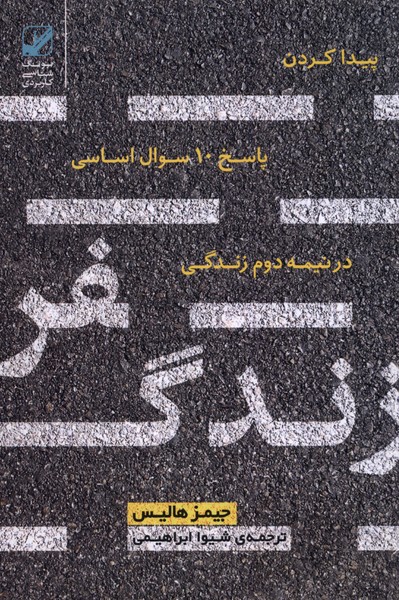 یونگ
شناسی
کاربردی
پیدا کردن
پاسخ ۱۰ سوال اساسی
در نیمه دوم زندگی
فر
زندگ
جیمز هالیس
ترجمه‌ی شیوا ابراهیمی